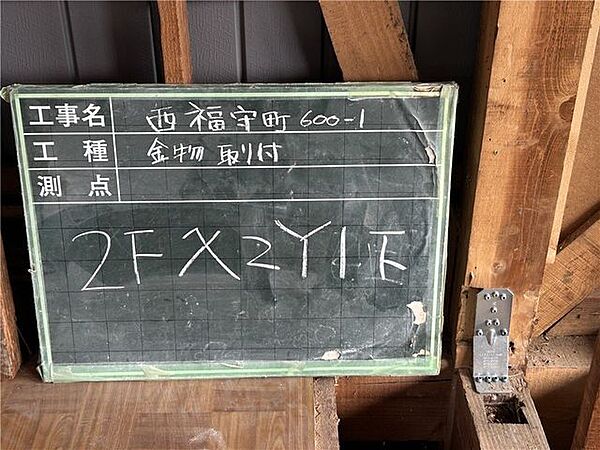 工事名 西福守町600-1
工種 金物取付
測点
2F X2Y1下